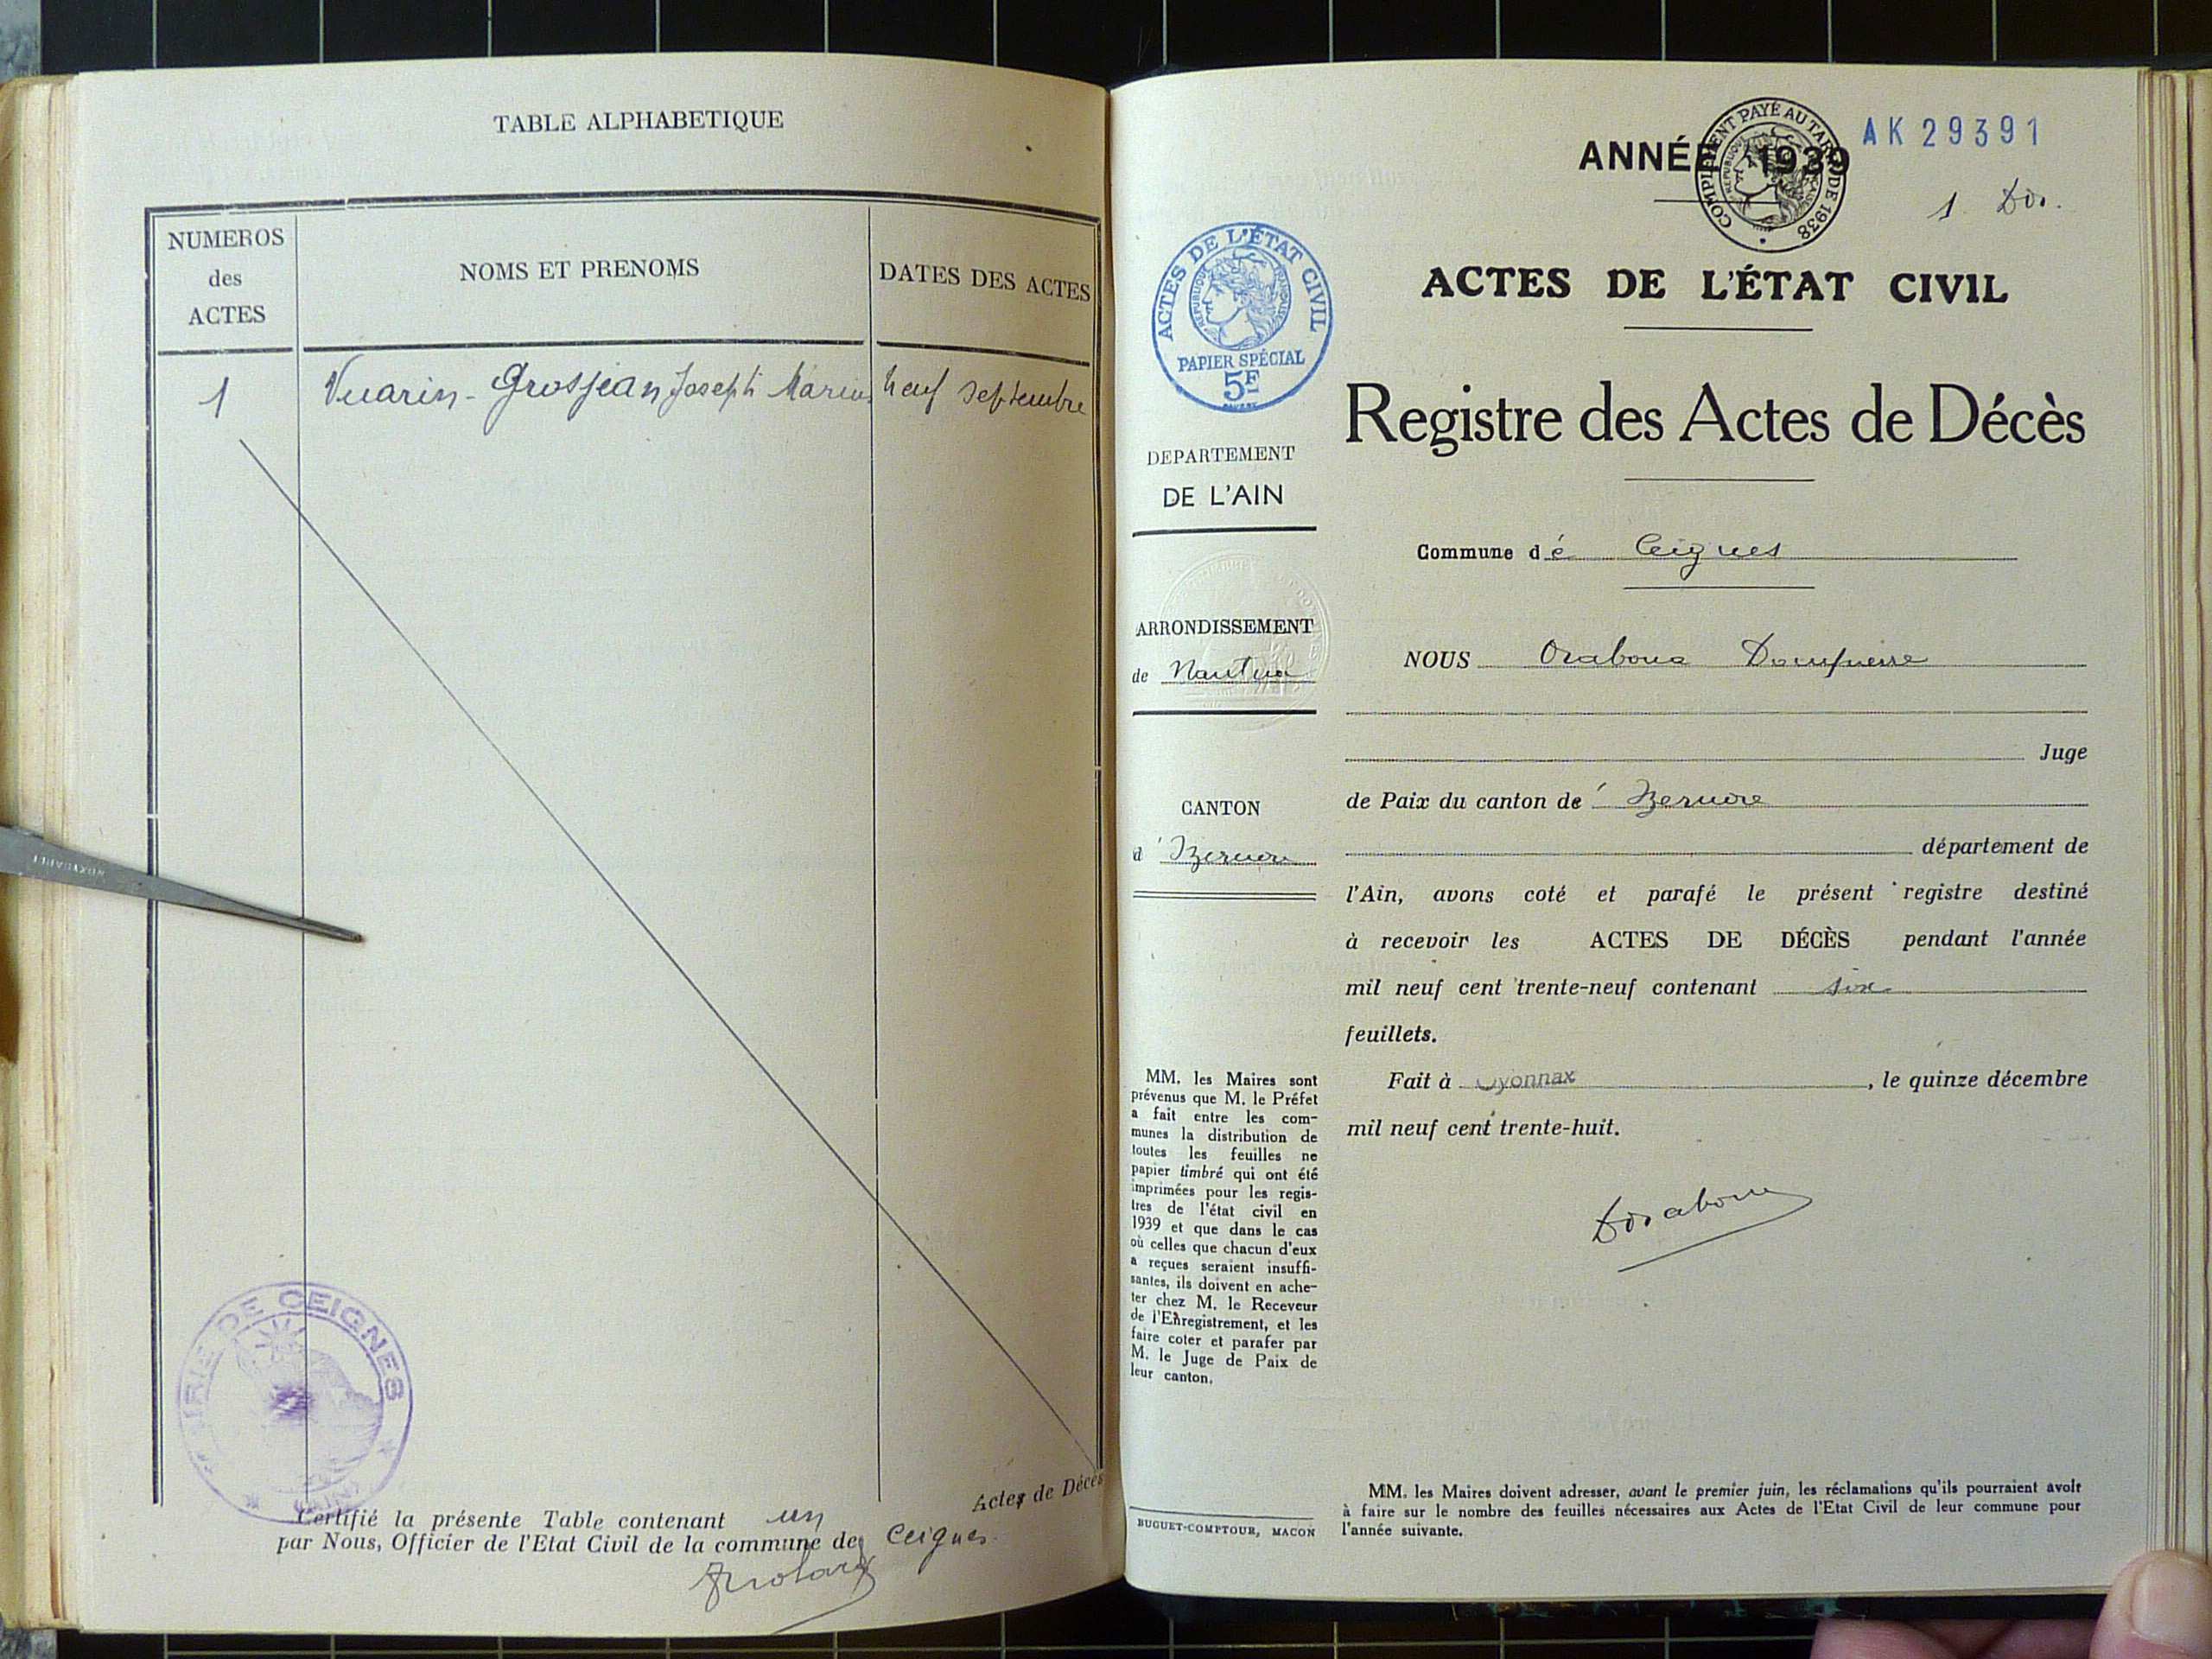 TABLE ALPHABETIQUE
NUMEROS
des
ACTES
NOMS ET PRENOMS
DATES DES ACTES
1
Vuarin - Grosjean Joseph Marius
neuf septembre
MAIRIE DE CEIGNES
(AIN)
Actes de Décès
Certifié la présente Table contenant un
par Nous, Officier de l'Etat Civil de la commune de Ceignes.
ANNÉE 1939
COMPLEMENT PAYÉ AU TARIF DE 1938
REPUBLIQUE FRANÇAISE
AK 29391
1
ACTES DE L'ÉTAT CIVIL
REPUBLIQUE FRANÇAISE
PAPIER SPÉCIAL
5F
ACTES DE L'ÉTAT CIVIL
Registre des Actes de Décès
DEPARTEMENT
DE L'AIN
ARRONDISSEMENT
de Nantua
CANTON
d'Izernore
MM. les Maires sont
prévenus que M. le Préfet
a fait entre les com-
munes la distribution de
toutes les feuilles ne
papier timbré qui ont été
imprimées pour les regis-
tres de l'état civil en
1939 et que dans le cas
où celles que chacun d'eux
a reçues seraient insuffi-
santes, ils doivent en ache-
ter chez M. le Receveur
de l'Enregistrement, et les
faire coter et parafer par
M. le Juge de Paix de
leur canton.
BUGUET-COMPTOUR, MACON
Commune de Ceignes
NOUS Orabona Dompierre
Juge
de Paix du canton de Izernore
département de
l'Ain, avons coté et parafé le présent registre destiné
à recevoir les ACTES DE DÉCÈS pendant l'année
mil neuf cent trente-neuf contenant six
feuillets.
Fait à Oyonnax, le quinze décembre
mil neuf cent trente-huit.
MM. les Maires doivent adresser, avant le premier juin, les réclamations qu'ils pourraient avoir
à faire sur le nombre des feuilles nécessaires aux Actes de l'Etat Civil de leur commune pour
l'année suivante.